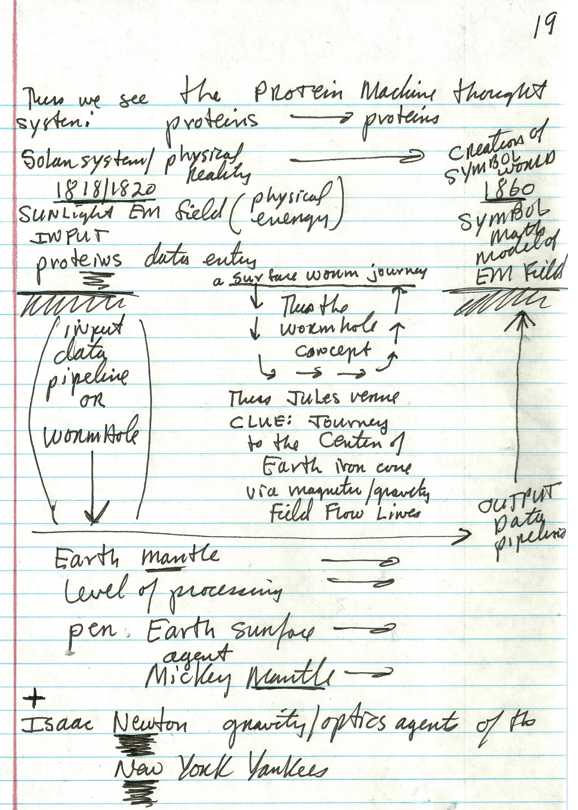 19
Thus we see the Protein Machine thought
system: proteins → proteins
Solar system/ physical reality → Creation of SYMBOL WORLD
1818/1820
1860
SUNLight EM Field (physical energy)
INPUT
SYMBOL
Math
model of
EM Field
proteins data entry
a surface worm journey
(input
data
pipeline
OR
wormHole)
Thus the
wormhole
concept
Thus Jules Verne
CLUE: Journey
to the Center of
Earth iron core
via magnetic/gravity
Field Flow Lines
OUTPUT
Data
pipeline
Earth mantle →
level of processing →
per: Earth surface →
agent
Mickey Mantle →
+
Isaac Newton gravity/optics agent of the
New York Yankees